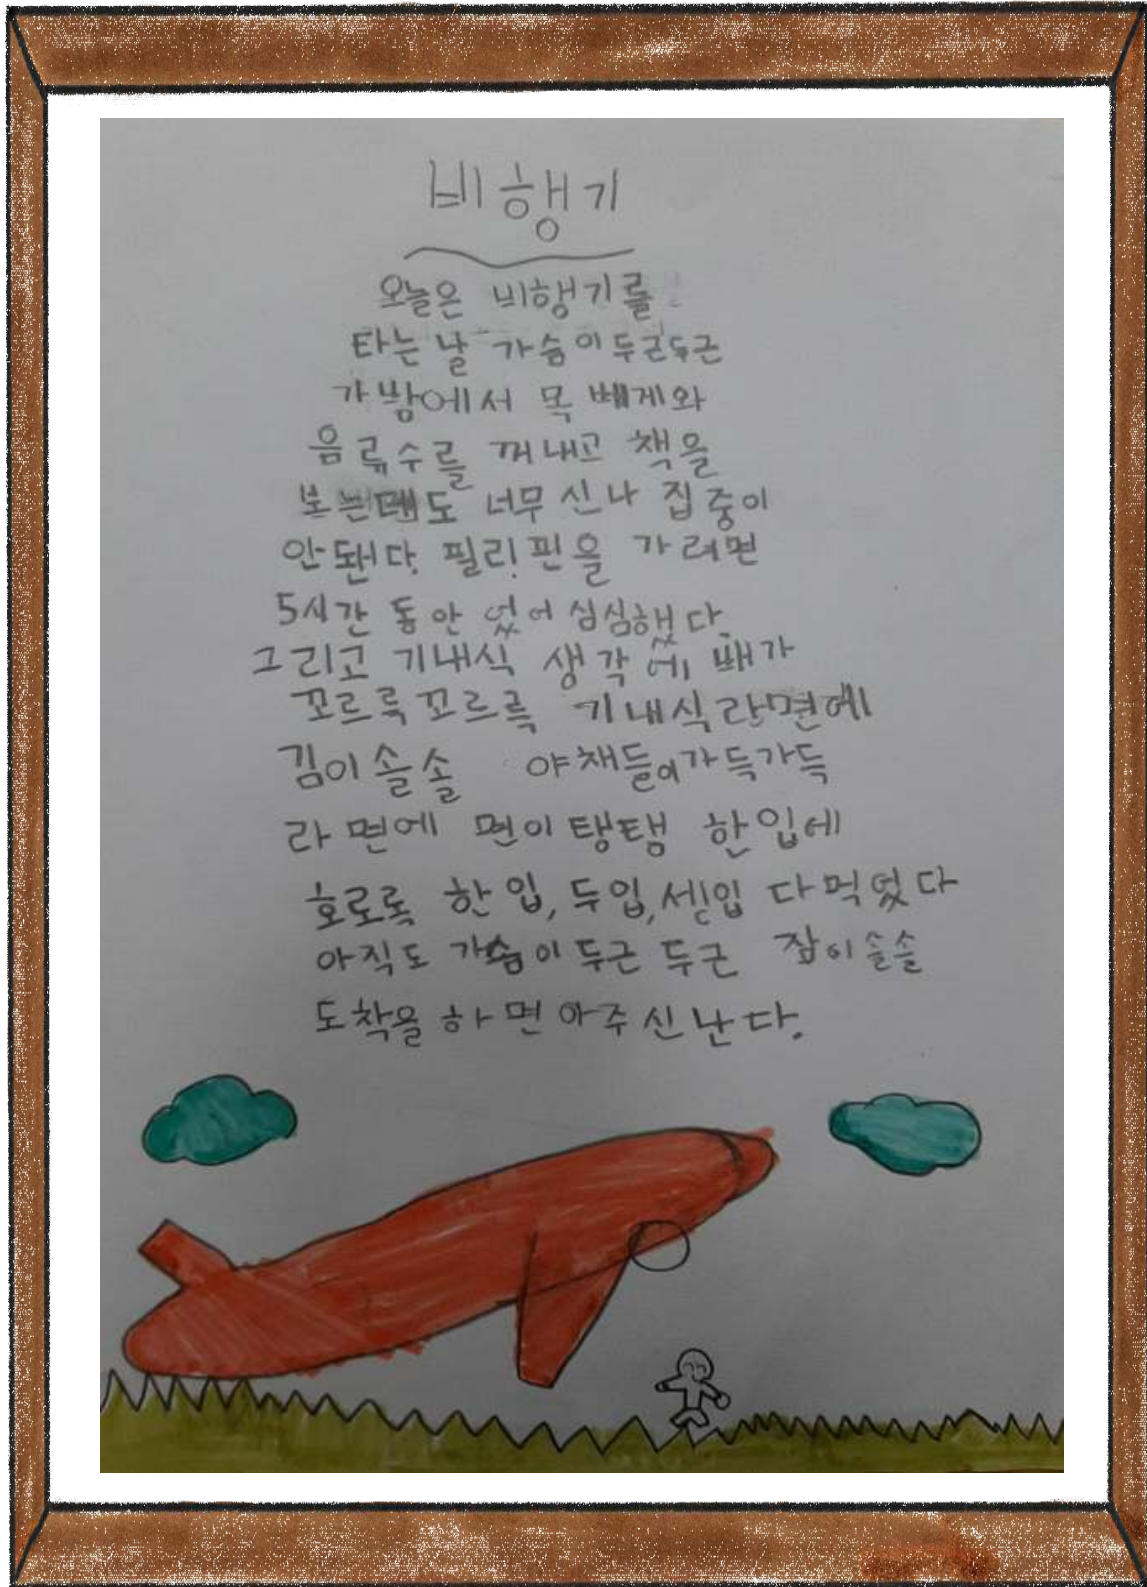 비행기
오늘은 비행기를
타는 날 가슴이 두근두근
가방에서 목 베게와
음류수를 꺼내고 책을
보는데도 너무 신나 집중이
안됀다. 필리핀을 가려면
5시간 동안 있어 심심했다.
그리고 기내식 생각에 배가
꼬르륵꼬르륵 기내식라면에
김이솔솔 야채들이가득가득
라면에 면이탱탱 한입에
호로록 한입, 두입, 세입 다먹었다
아직도 가슴이두근 두근 잠이솔솔
도착을 하면 아주신난다.